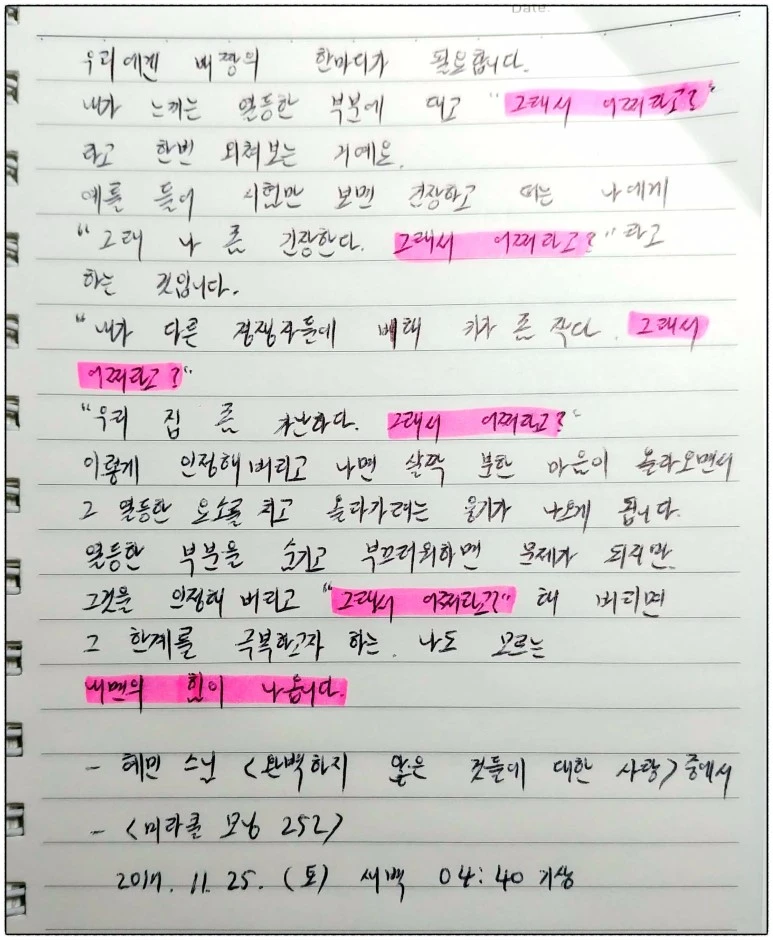 Date.
우리에겐 배짱의 한마디가 필요합니다.
내가 느끼는 열등한 부분에 대고 "그래서 어쩌라고?"
라고 한번 외쳐보는 거예요.
예를 들어 시험만 보면 긴장하고 떠는 나에게
"그래 나 좀 긴장한다. 그래서 어쩌라고?" 라고
하는 것입니다.
"내가 다른 경쟁자들에 비해 키가 좀 작다. 그래서
어쩌라고?"
"우리 집 좀 가난하다. 그래서 어쩌라고?"
이렇게 인정해 버리고 나면 살짝 분한 마음이 올라오면서
그 열등한 요소를 치고 올라가려는 용기가 나오게 됩니다.
열등한 부분을 숨기고 부끄러워하면 문제가 되지만
그것을 인정해 버리고 "그래서 어쩌라고?" 해 버리면
그 한계를 극복하고자 하는, 나도 모르는
내면의 힘이 나옵니다.
- 혜민 스님 <완벽하지 않은 것들에 대한 사랑> 중에서
- <미라클 모닝 252>
2017. 11. 25. (토) 새벽 04:40 기상